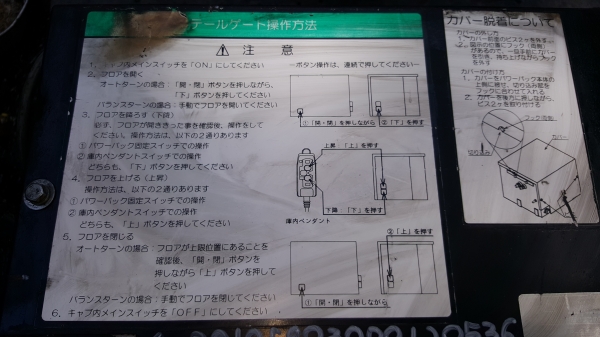 テールゲート操作方法
注 意
1. キャブ内メインスイッチを「ON」にしてください
2. フロアを開く
オートターンの場合:「開・閉」ボタンを押しながら、
「下」ボタンを押してください
バランスターンの場合:手動でフロアを開いてください
3. フロアを降ろす(下降)
必ず、フロアが開ききった事を確認後、操作をして
ください。操作方法は、以下の2通りあります
① パワーパック固定スイッチでの操作
② 庫内ペンダントスイッチでの操作
どちらも、「下」ボタンを押してください
4. フロアを上げる(上昇)
操作方法は、以下の2通りあります
① パワーパック固定スイッチでの操作
② 庫内ペンダントスイッチでの操作
どちらも、「上」ボタンを押してください
5. フロアを閉じる
オートターンの場合:フロアが上限位置にあることを
確認後、「開・閉」ボタンを
押しながら「上」ボタンを押して
ください
バランスターンの場合:手動でフロアを閉じてください
6. キャブ内メインスイッチを「OFF」にしてください
ーボタン操作は、連続で押してくださいー
①「開・閉」を押しながら
②「下」を押す
上昇 「上」を押す
下降 「下」を押す
庫内ペンダント
②「上」を押す
①「開・閉」を押しながら
カバー脱着について
カバーの外し方
1. カバー前面のビス2ヶを外す
2. 図示の位置にフック(両側)
があるので、一度手前にカバー
を引き、持ち上げながらフック
を外す
カバーの付け方
1. カバーをパワーパック本体の
上側に被せ、切り込み部を
フックに合わせて入れる
2. カバーを後方に押しながら、
ビス2ヶを取り付ける
フック
カバー
切り込み